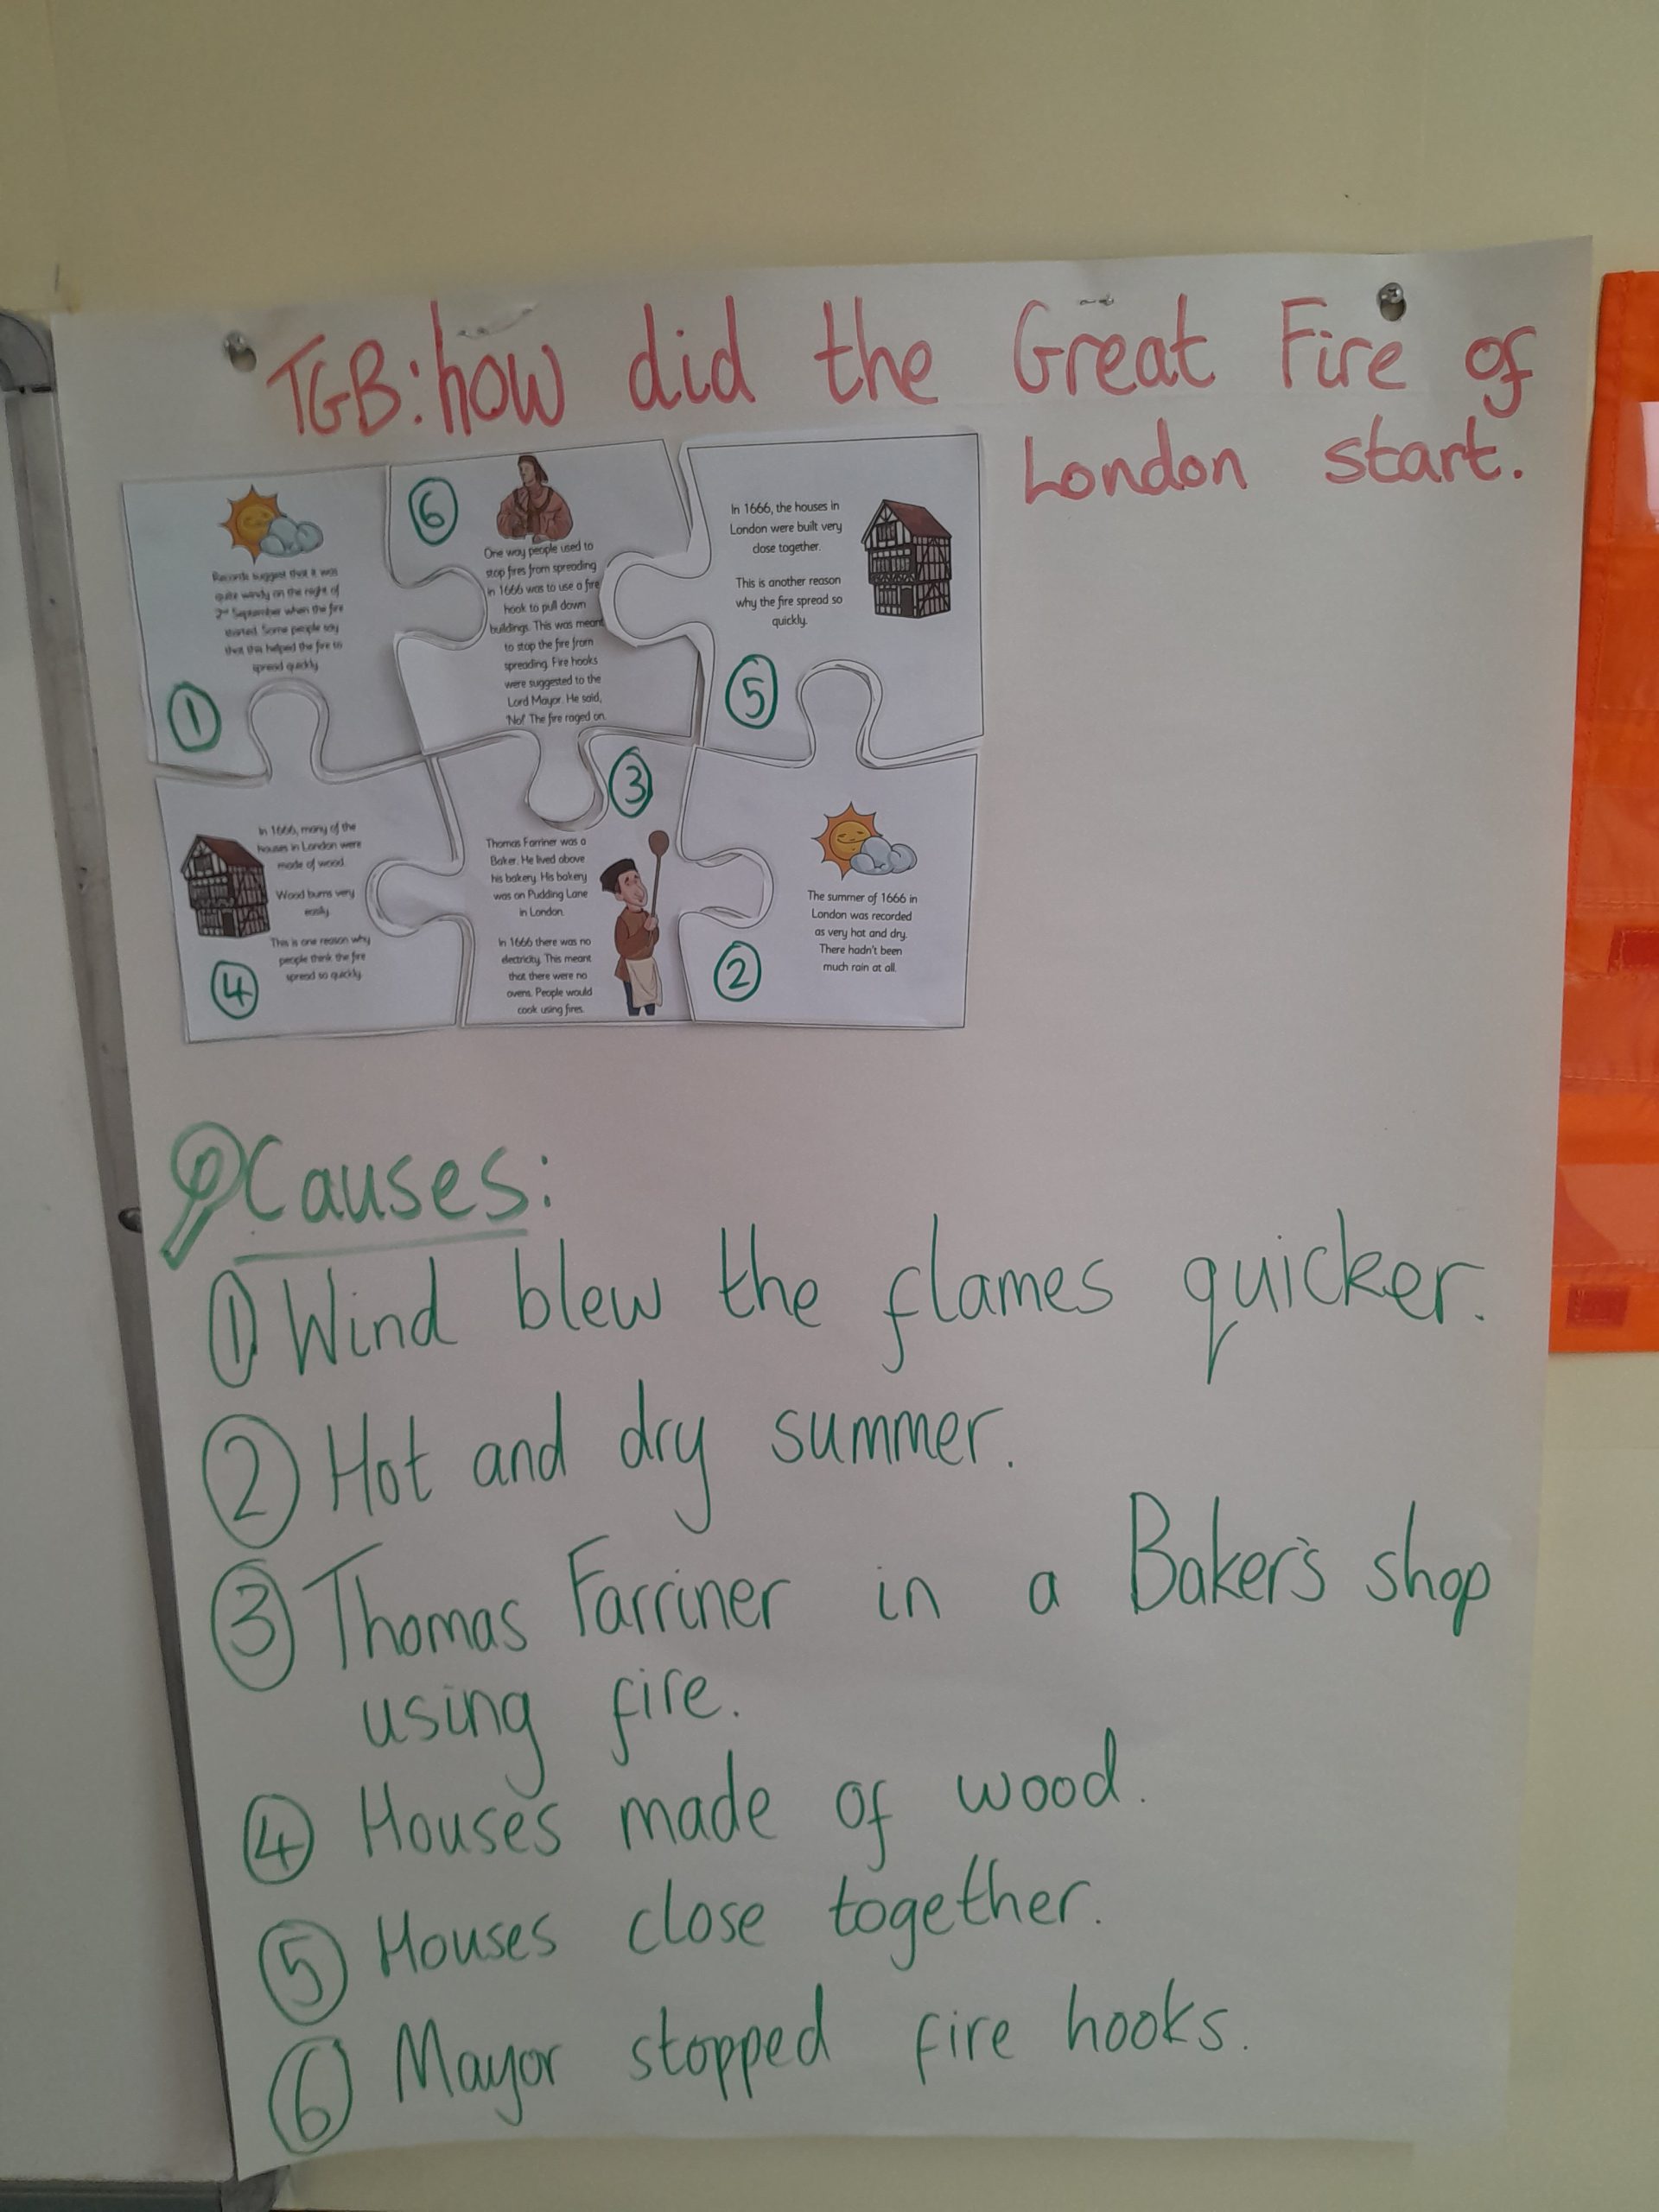 TGB: how did the Great Fire of
London start.
1
Records suggest that it was
quite windy on the night of
2nd September when the fire
started. Some people say
that this helped the fire to
spread quickly.
6
One way people used to
stop fires from spreading
in 1666 was to use a fire
hook to pull down
buildings. This was meant
to stop the fire from
spreading. Fire hooks
were suggested to the
Lord Mayor. He said,
'No!' The fire raged on.
In 1666, the houses in
London were built very
close together.
This is another reason
why the fire spread so
quickly.
5
In 1666, many of the
houses in London were
made of wood.
Wood burns very
easily.
This is one reason why
people think the fire
spread so quickly.
4
3
Thomas Farriner was a
Baker. He lived above
his bakery. His bakery
was on Pudding Lane
in London.
In 1666 there was no
electricity. This meant
that there were no
ovens. People would
cook using fires.
The summer of 1666 in
London was recorded
as very hot and dry.
There hadn't been
much rain at all.
2
Causes:
1 Wind blew the flames quicker.
2 Hot and dry summer.
3 Thomas Farriner in a Baker's shop
using fire.
4 Houses made of wood.
5 Houses close together.
6 Mayor stopped fire hooks.